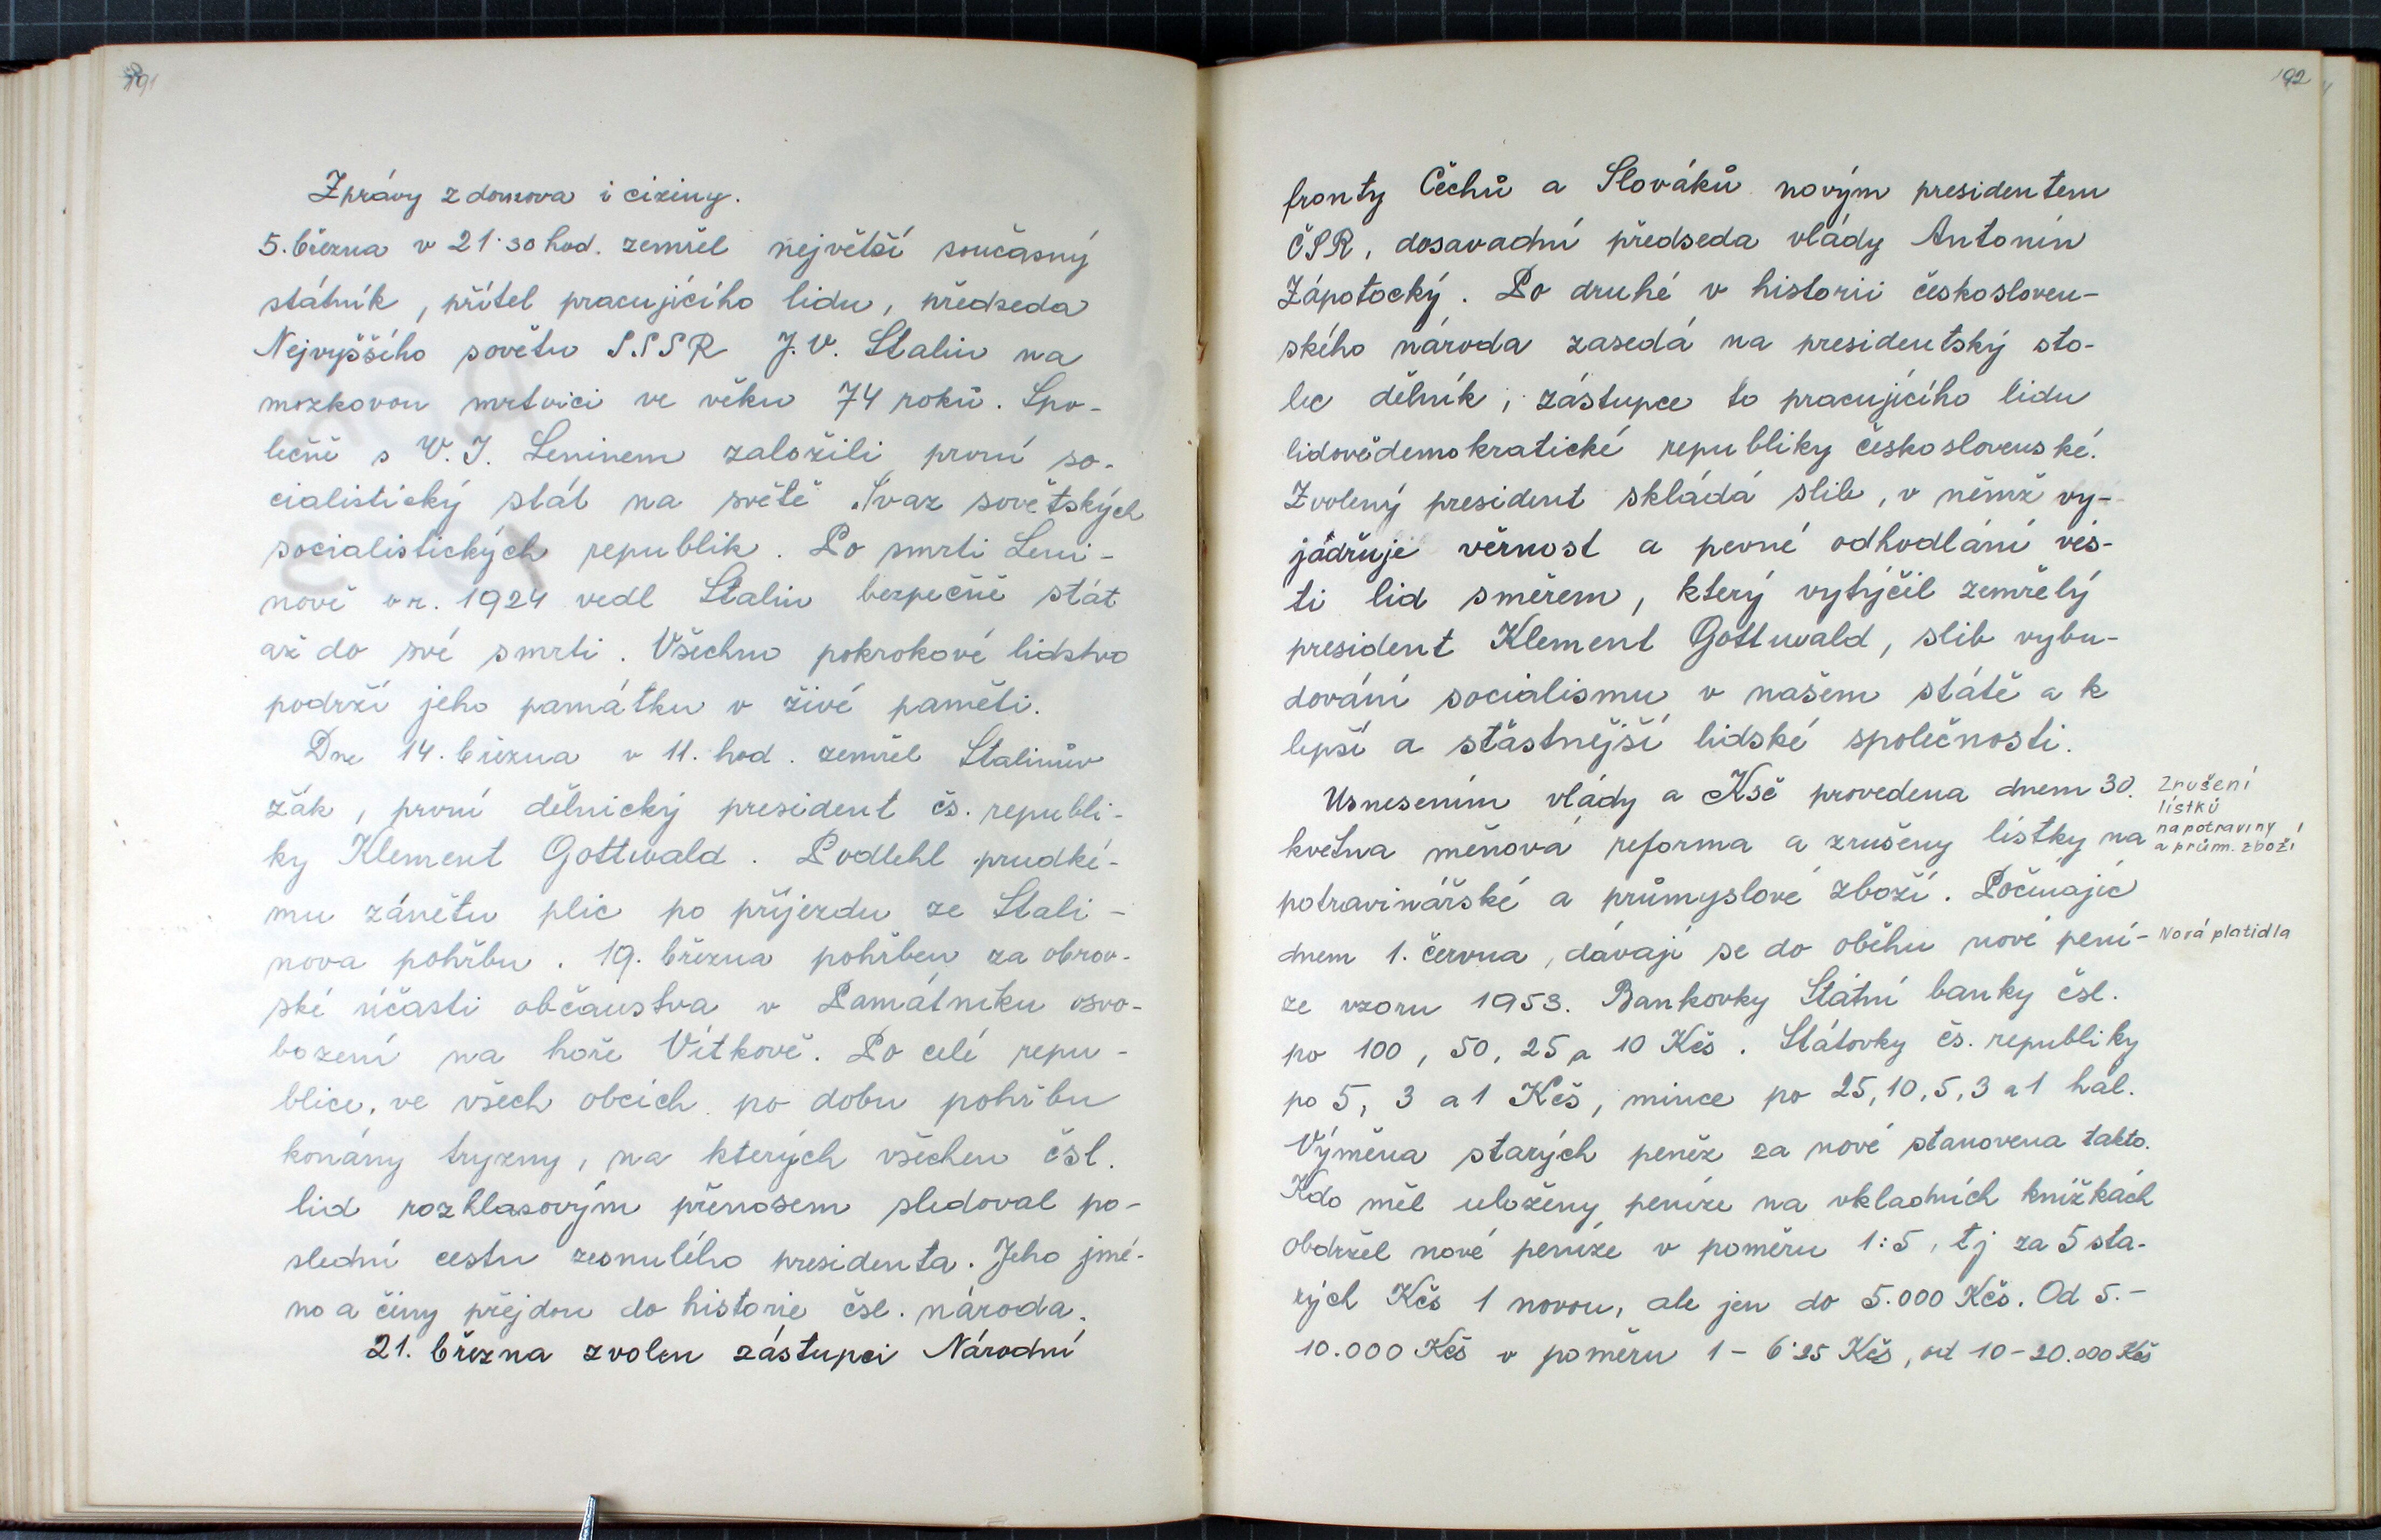 191
Zprávy z domova i ciziny.
5. března v 21˙30 hod. zemřel největší současný
státník, přítel pracujícího lidu, předseda
Nejvyššího sovětu S.S.S.R J. V. Stalin na
mozkovou mrtvici ve věku 74 roků. Spo-
lečně s V. I. Leninem založili první so-
cialistický stát na světě Svaz sovětských
socialistických republik. Po smrti Leni-
nově v r. 1924 vedl Stalin bezpečně stát
až do své smrti. Všechno pokrokové lidstvo
podrží jeho památku v živé paměti.
Dne 14. března v 11. hod. zemřel Stalinův
žák, první dělnický president čs. republi-
ky Klement Gottwald. Podlehl prudké-
mu zánětu plic po příjezdu ze Stali-
nova pohřbu. 19. března pohřben za obrov-
ské účasti občanstva v Památníku osvo-
bození na hoře Vítkově. Po celé repu-
blice, ve všech obcích po dobu pohřbu
konány tryzny, na kterých všechen čsl.
lid rozhlasovým přenosem sledoval po-
slední cestu zesnulého presidenta. Jeho jmé-
no a činy přejdou do historie čsl. národa.
21. března zvolen zástupci Národní
192
fronty Čechů a Slováků novým presidentem
ČSR, dosavadní předseda vlády Antonín
Zápotocký. Po druhé v historii českosloven-
ského národa zasedá na presidentský sto-
lec dělník, zástupce to pracujícího lidu
lidovědemokratické republiky československé.
Zvolený president skládá slib, v němž vy-
jadřuje věrnost a pevné odhodlání vés-
ti lid směrem, který vytýčil zemřelý
president Klement Gottwald, slib vybu-
dování socialismu v našem státě a k
lepší a šťastnější lidské společnosti.
Usnesením vlády a Ksč provedena dnem 30.
května měnová reforma a zrušeny lístky na
potravinářské a průmyslové zboží. Počínajíc
dnem 1. června, dávají se do oběhu nové pení-
ze vzoru 1953. Bankovky Státní banky čsl.
po 100, 50, 25 a 10 Kčs. Státovky čs. republiky
po 5, 3 a 1 Kčs, mince po 25, 10, 5, 3 a 1 hal.
Výměna starých peněz za nové stanovena takto.
Kdo měl uloženy peníze na vkladních knížkách
obdržel nové peníze v poměru 1:5, tj za 5 sta-
rých Kčs 1 novou, ale jen do 5.000 Kčs. Od 5.-
10.000 Kčs v poměru 1 – 6˙25 Kčs, od 10-20.000 Kčs
Zrušení
lístků
na potraviny
a prům. zboží
Nová platidla